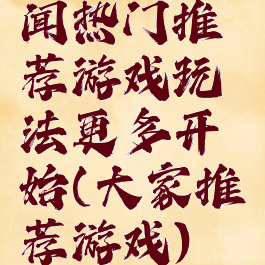 闻热门推
荐游戏玩
法更多开
始(大家推
荐游戏)